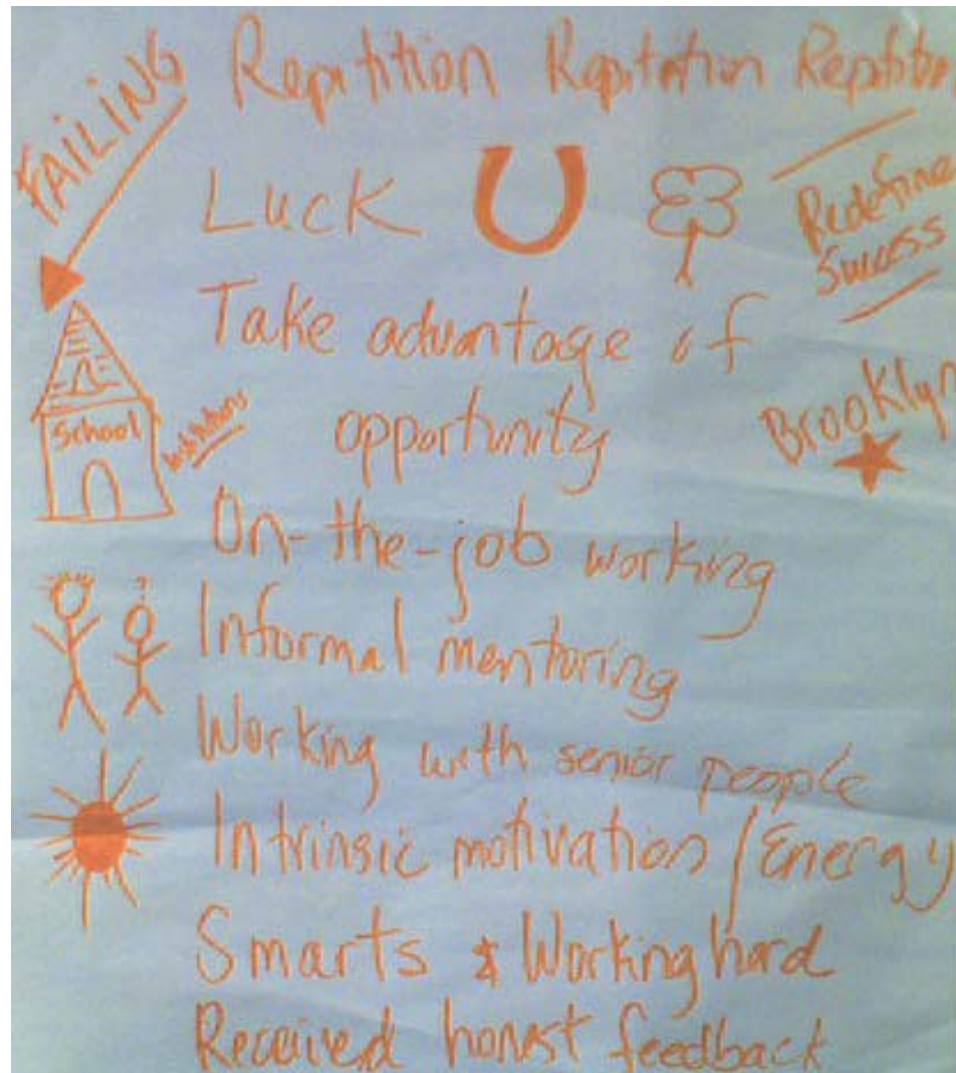 FAILING
Repitition Repitation Repitition
Luck
Redefine
Success
Take advantage of
opportunity
Brooklyn
School
Institutions
On-the-job working
Informal mentoring
Working with senior people
Intrinsic motivation / Energy
Smarts & Working hard
Received honest feedback